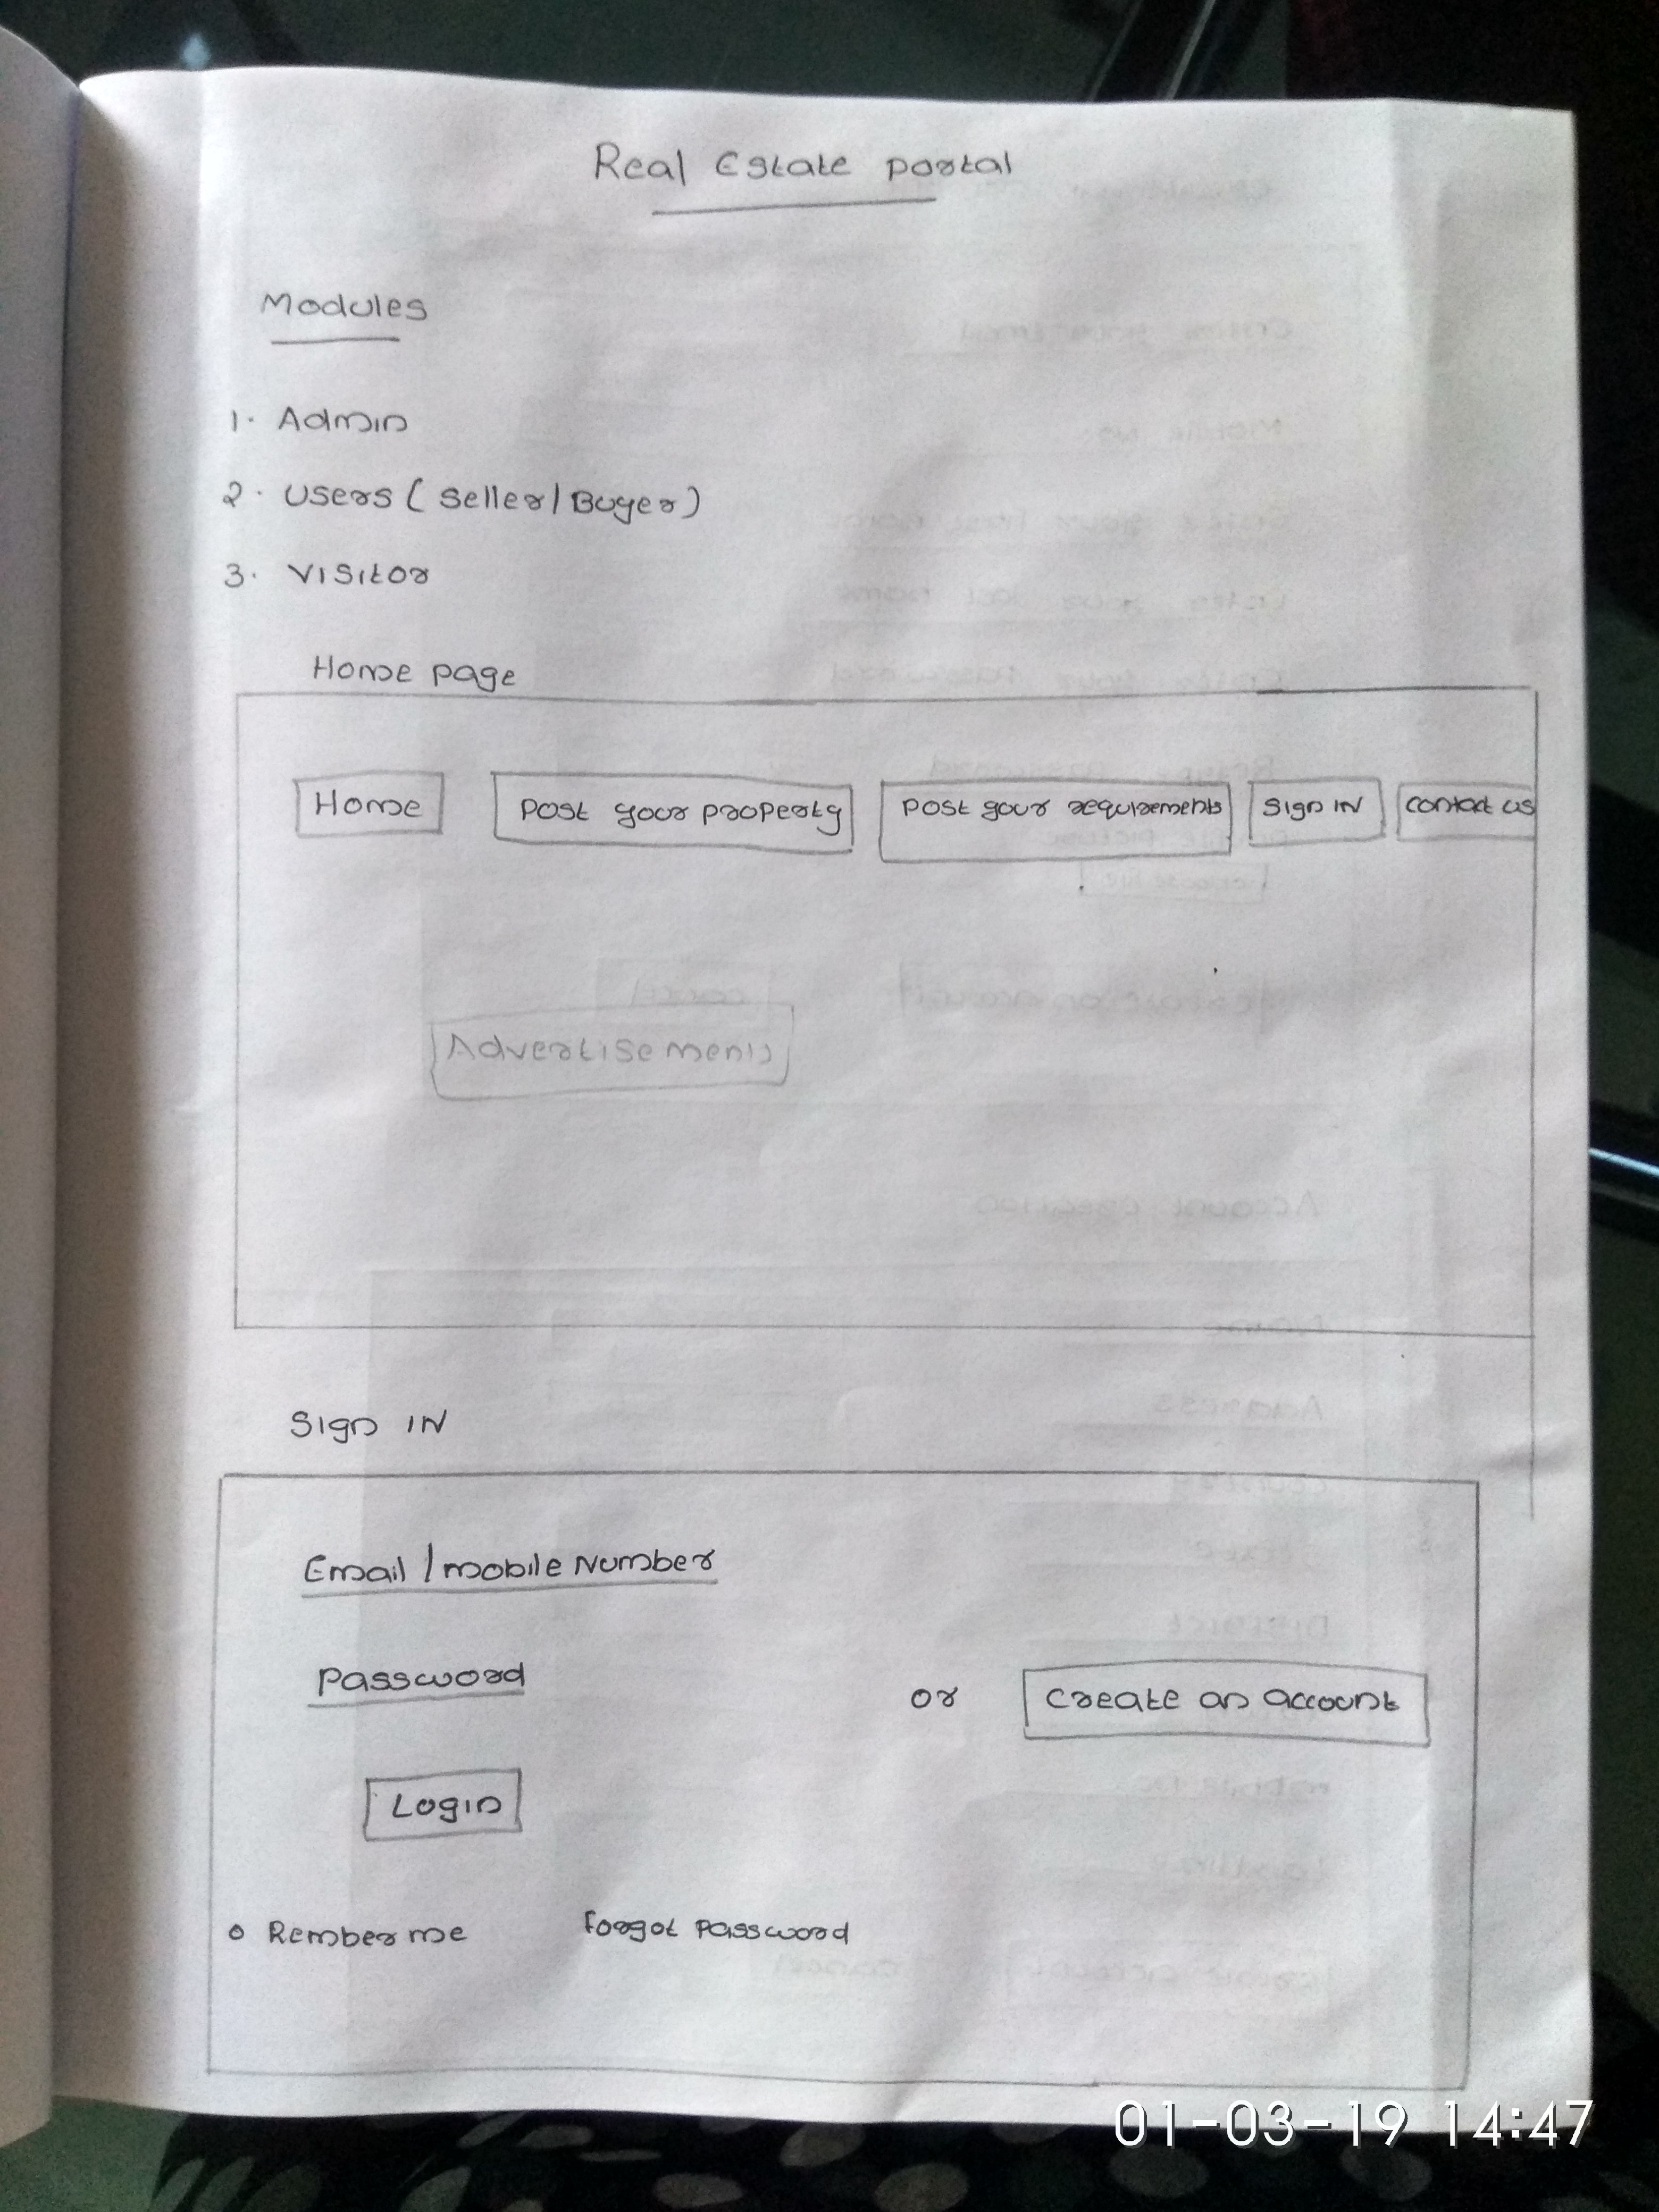 Real Estate portal
Modules
1. Admin
2. Users ( Seller/Buyer )
3. Visitor
Home page
Home Post your property Post your requirements Sign IN contact us
Advertisements
Sign IN
Email / mobile Number
Password
or Create an account
Login
o Rember me forgot password
01-03-19 14:47